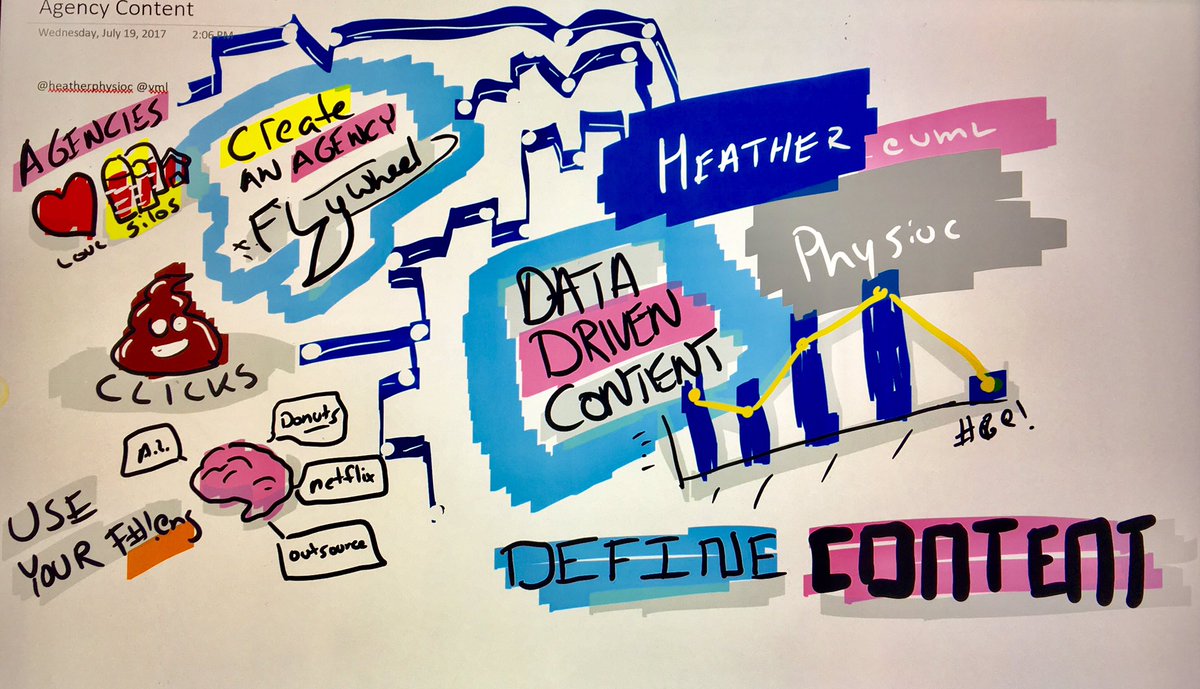 Agency Content
Wednesday, July 19, 2017 2:06 PM
@heatherphysioc @vml
AGENCIES
LOVE
Silos
Create
AN AGENCY
FLYWheel
CLICKS
A.I.
Donuts
netflix
outsource
USE
YOUR F#!eng
HEATHER
Physioc
DATA
DRIVEN
CONTENT
DEFINE CONTENT